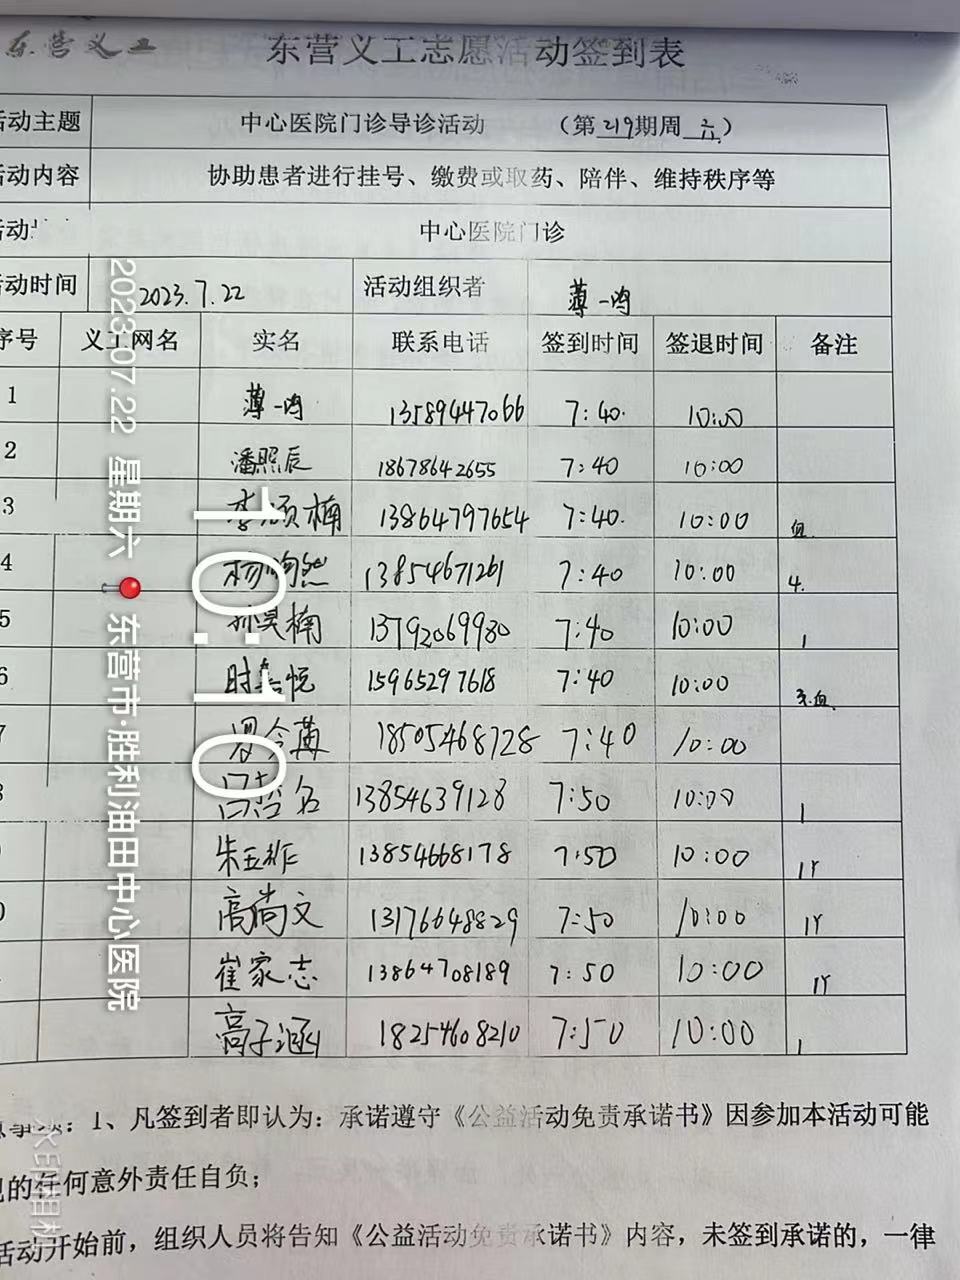 东营义工 东营义工志愿活动签到表
活动主题 中心医院门诊导诊活动 （第219期周六）
活动内容 协助患者进行挂号、缴费或取药、陪伴、维持秩序等
活动 中心医院门诊
活动时间 2023.7.22 活动组织者 薄一鸣
序号 义工网名 实名 联系电话 签到时间 签退时间 备注
1 薄一鸣 13589447066 7:40. 10:00
2 潘照辰 18678642655 7:40 10:00
3 李颂楠 13864797654 7:40. 10:00
4 杨然 13854671261 7:40 10:00 4.
5 孙昊楠 13792069980 7:40 10:00
6 时悦 15965297618 7:40 10:00
7 18505468728 7:40 10:00
8 名 13854639128 7:50 10:00
朱玉祚 13854668178 7:50 10:00
0 高尚文 13176648829 7:50 10:00
崔家志 13864708189 7:50 10:00
高子涵 18254608210 7:50 10:00
事项：1、凡签到者即认为：承诺遵守《公益活动免责承诺书》因参加本活动可能
的任何意外责任自负；
活动开始前，组织人员将告知《公益活动免责承诺书》内容，未签到承诺的，一律
10:10
2023.07.22 星期六 东营市·胜利油田中心医院
水印相机